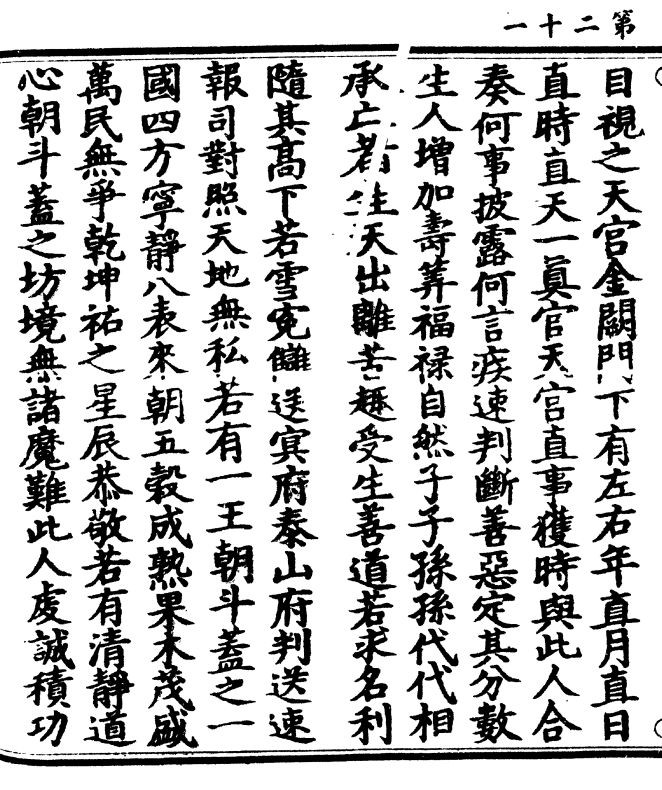 第二十一
目視之天官金闕門下有左右年直月直日
直時直天一眞官天官直事獲時與此人合
奏何事披露何言疾速判斷善惡定其分數
生人增加壽筭福禄自然子子孫孫代代相
承亡者生天出離苦趣受生善道若求名利
隨其高下若雪寃讎送㝠府泰山府判送速
報司對照天地無私若有一王朝斗蓋之一
國四方寧靜八表來朝五穀成熟果木茂盛
萬民無爭乾坤祐之星辰恭敬若有清靜道
心朝斗蓋之坊境無諸魔難此人虔誠積功